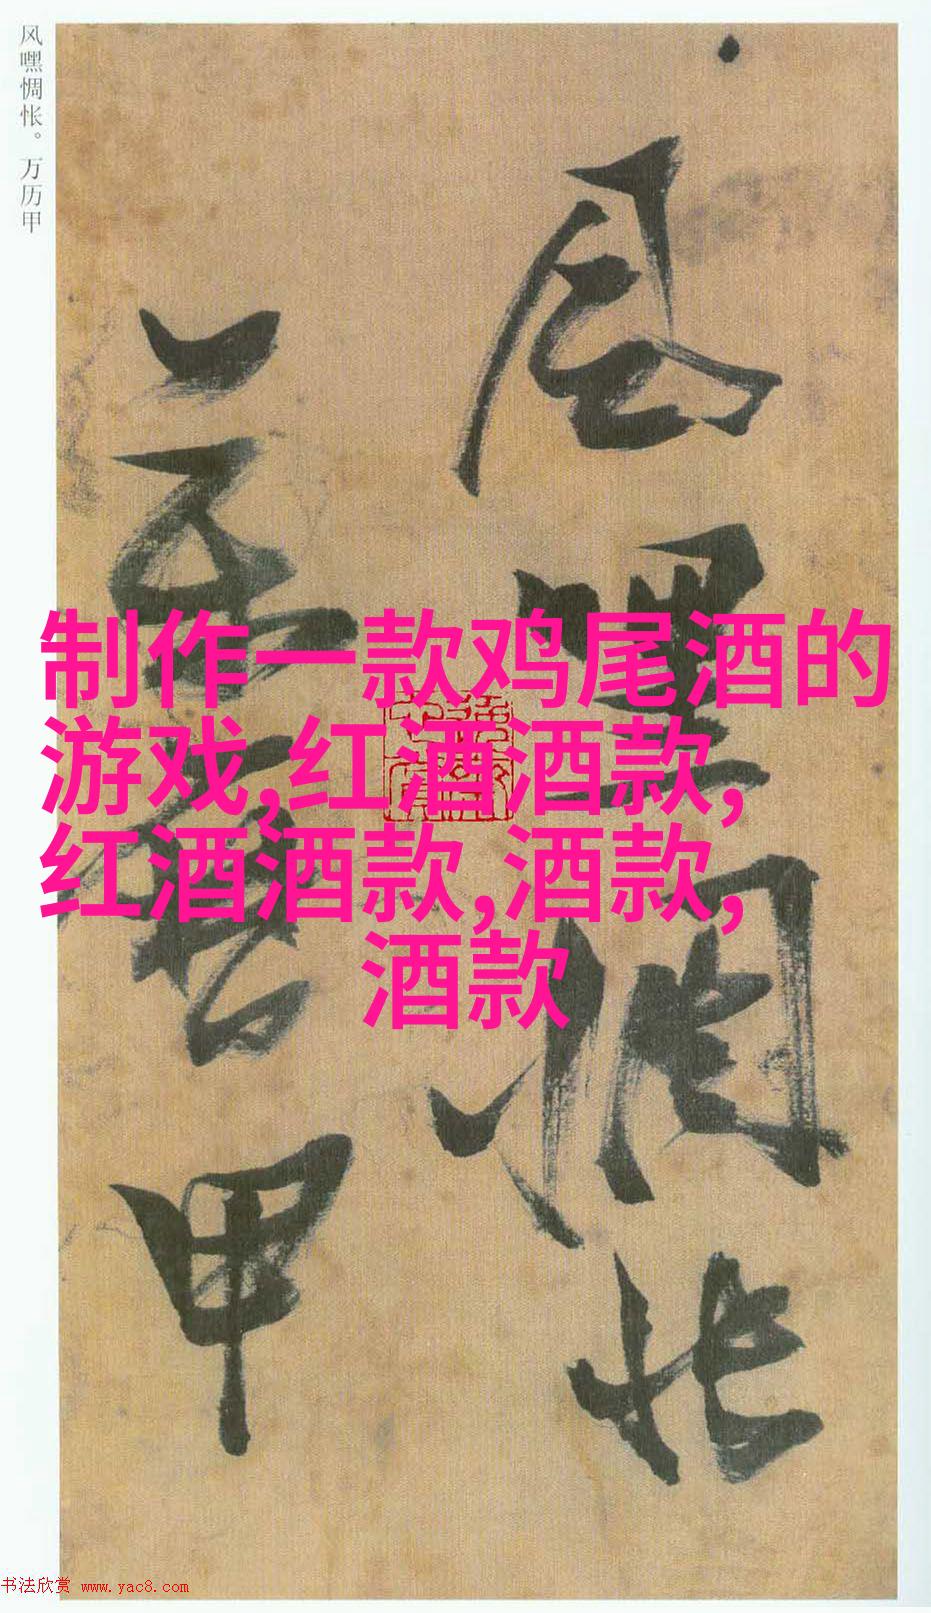 风嘿惆怅。万历甲
风嘿惆怅
万历甲
制作一款鸡尾酒的
游戏,红酒酒款,
红酒酒款,酒款,
酒款
书法欣赏 www.yac8.com